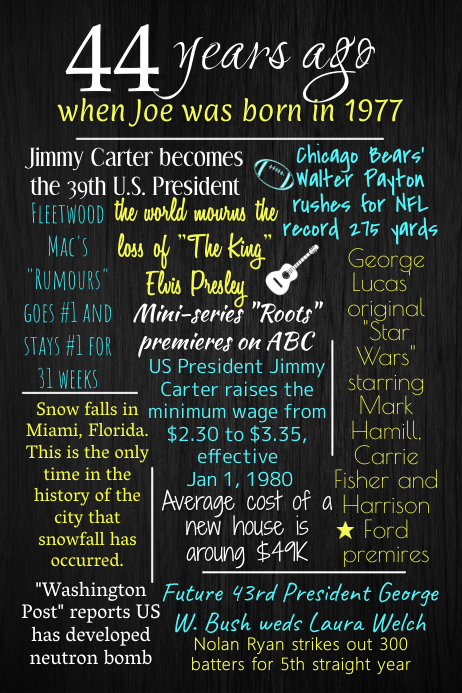 44 years ago
when Joe was born in 1977
Jimmy Carter becomes
the 39th U.S. President
Chicago Bears'
Walter Payton
rushes for NFL
record 275 yards
Fleetwood
Mac's
"Rumours"
goes #1 and
stays #1 for
31 weeks
the world mourns the
loss of "The King"
Elvis Presley
Mini-series "Roots"
premieres on ABC
George
Lucas'
original
"Star
Wars"
starring
Mark
Hamill,
Carrie
Fisher and
Harrison
Ford
premires
US President Jimmy
Carter raises the
minimum wage from
$2.30 to $3.35,
effective
Jan 1, 1980
Snow falls in
Miami, Florida.
This is the only
time in the
history of the
city that
snowfall has
occurred.
Average cost of a
new house is
aroung $49K
"Washington
Post" reports US
has developed
neutron bomb
Future 43rd President George
W. Bush weds Laura Welch
Nolan Ryan strikes out 300
batters for 5th straight year